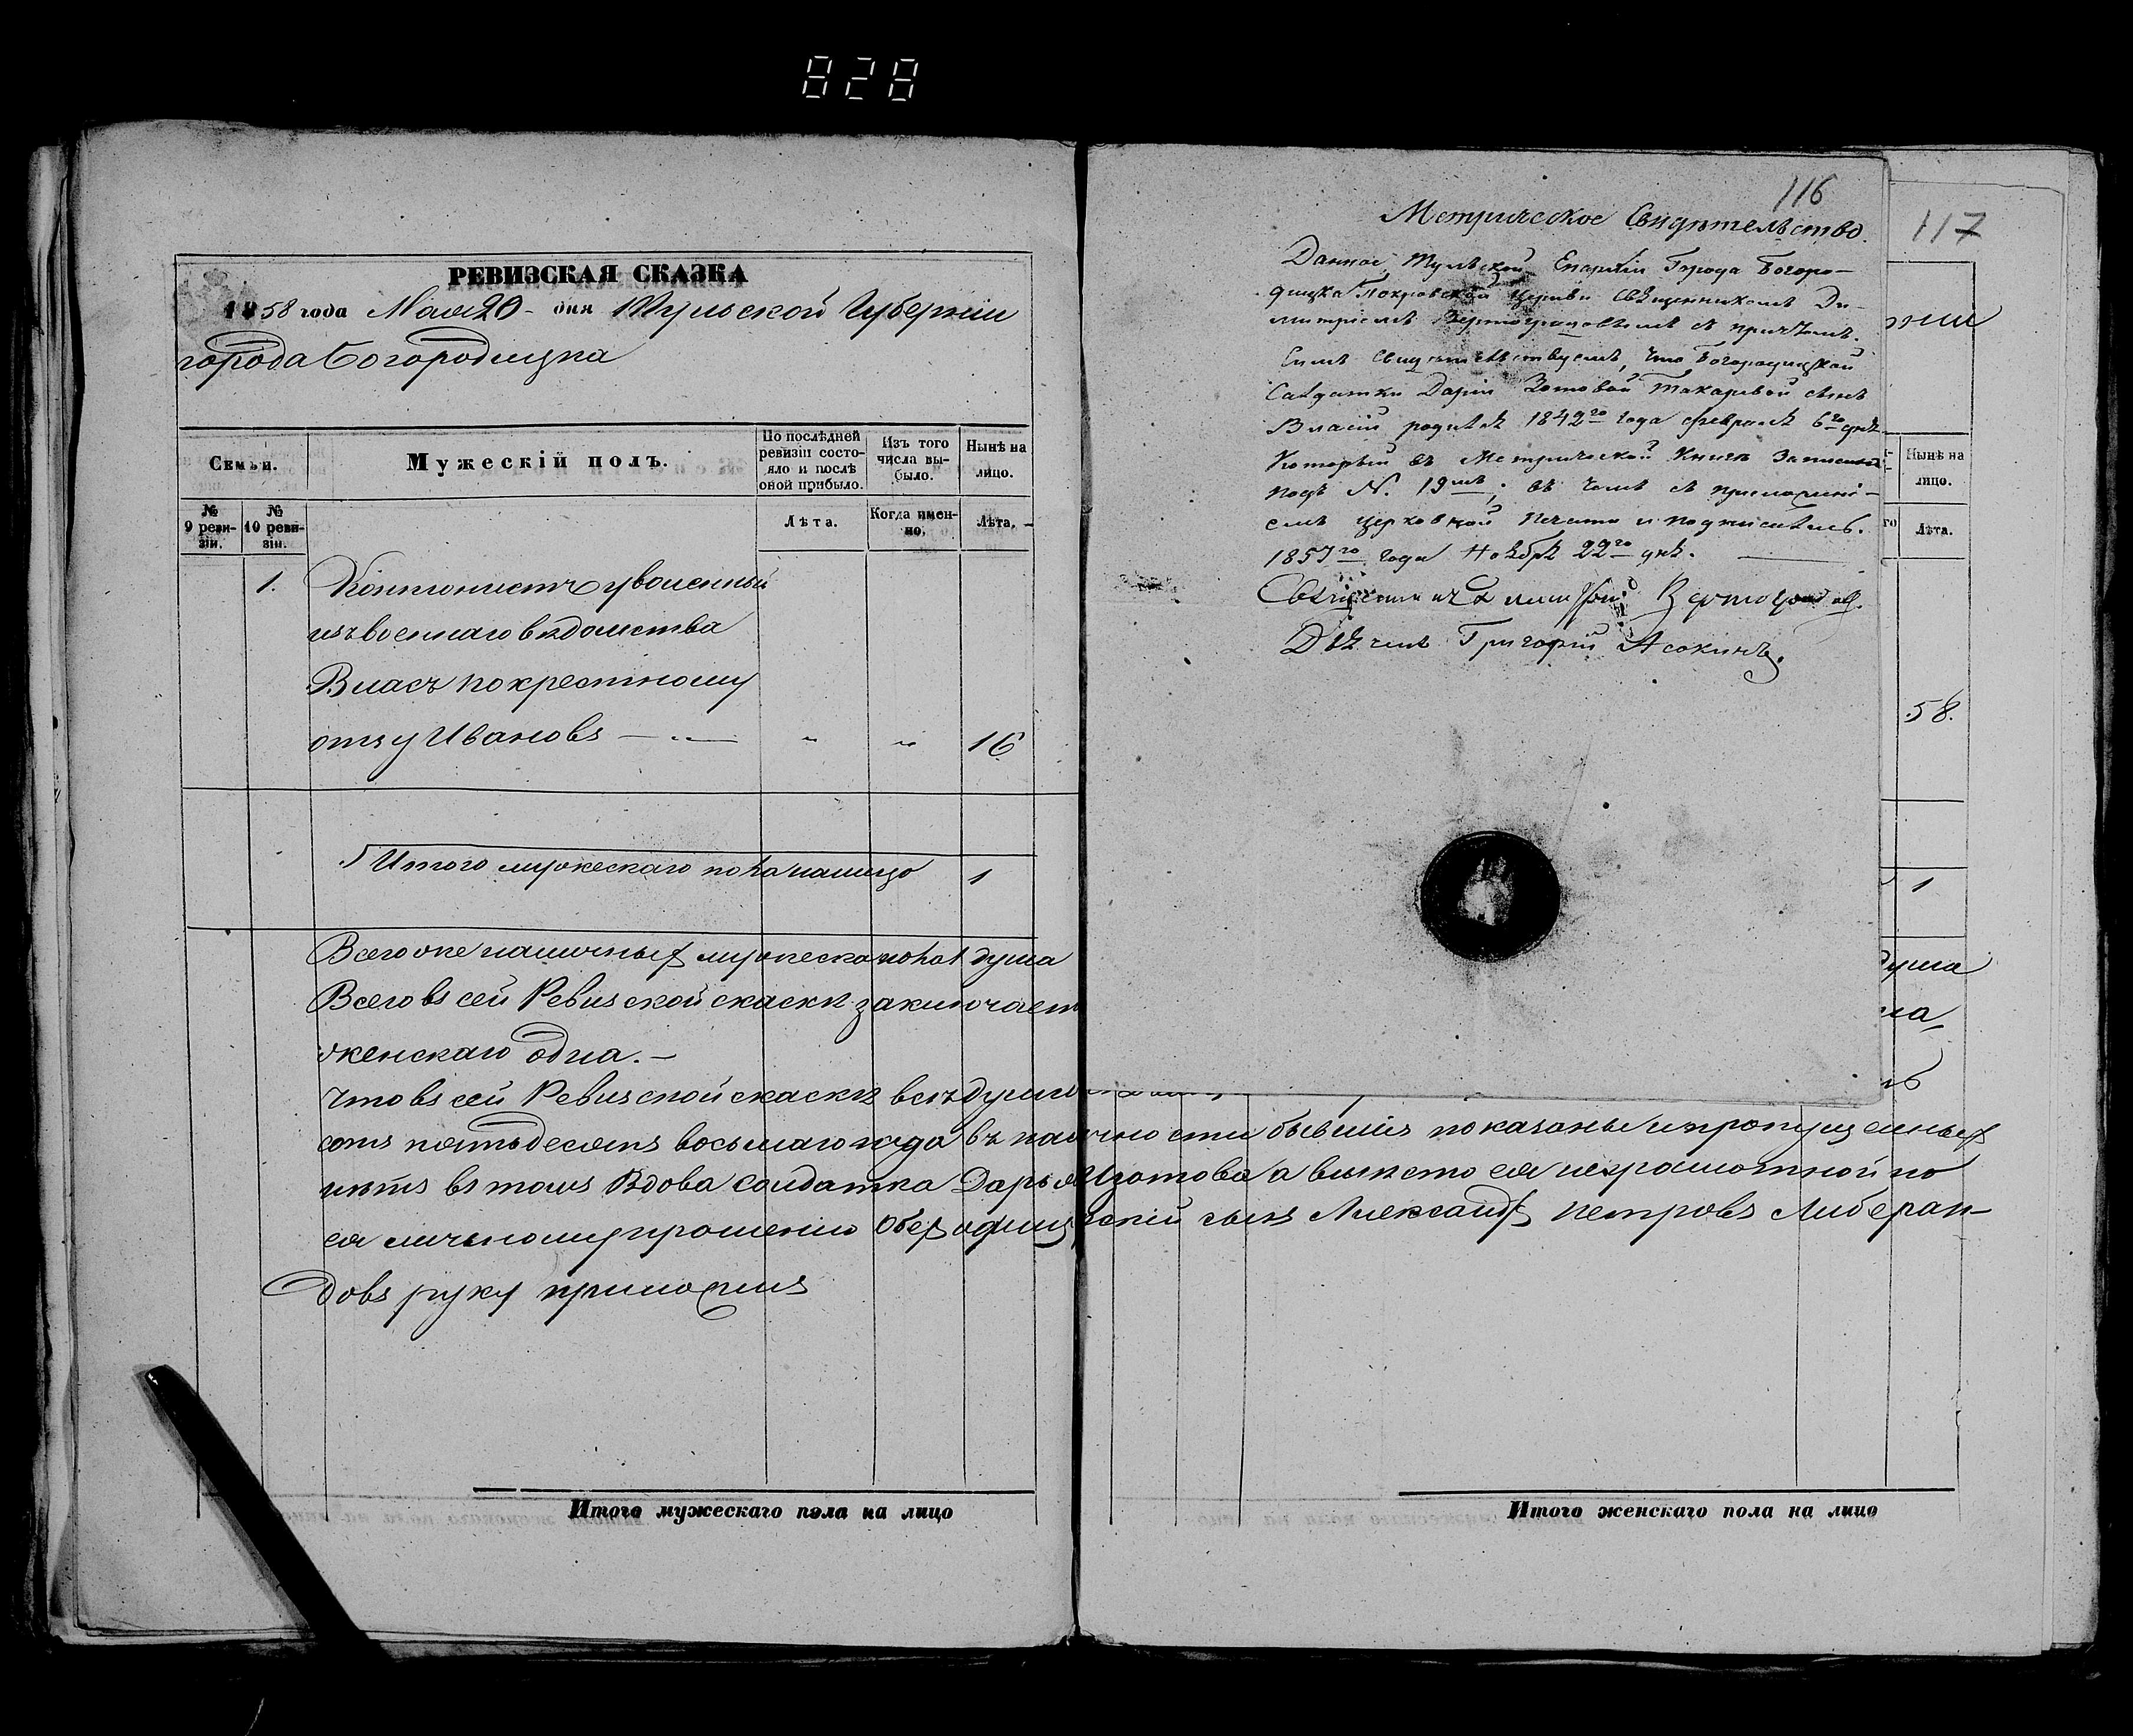 828
РЕВИЗСКАЯ СКАЗКА
1858 года Мая 20 - дня Тульской Губерніи
города Богородицка
Семьи.
Мужескій полъ.
По послѣдней ревизіи состояло и послѣ оной прибыло.
Изъ того числа выбыло.
Нынѣ на лицо.
№ 9 ревизіи.
№ 10 ревизіи.
Лѣта.
Когда именно.
Лѣта.
1. Кантонистъ уволенный
изъ военнаго вѣдомства
Власъ по крестному
отцу Ивановъ — „ — „ „ 16
Итого мужескаго пола налицо 1
Всего же наличныхъ мужеска пола 1 душа
Всего въ сей Ревизской скаскѣ заключает
женскаго одна. —
Что въ сей Ревизской скаскѣ всѣ души
сотъ пятьдесятъ восьмаго года въ наличности бывшія показаны и пропущенныхъ
нѣтъ въ томъ Вдова солдатка Дарья Изотова а вмѣсто ея неграмотной по
ея личному прошенію Обер офицерскій сынъ Александръ Петровъ Либеран-
довъ руку приложилъ
Итого мужескаго пола на лицо
116
Метрическое Свидѣтельство.
Данное Тульской Епархіи Города Богоро-
дицка Покровской церкви Священникомъ Ди-
митріемъ Вертоградовымъ съ причтомъ.
Симъ свидѣтельствуемъ, что Богородицкой
Салдатки Даріи Зотовой Токаревой сынъ
Власій родился 1842го года февраля 6го дня
Который въ Метрической Книгѣ Записанъ
подъ N. 19мъ; въ чемъ съ приложені-
емъ церковной печати и подписались.
1857го года Ноября 22го дня.
Священникъ Димитрій Вертоградовъ.
Дьячекъ Григорій Асокинъ.
117
рніи
Нынѣ на лицо.
го
Лѣта.
58.
1
душа
на
Итого женскаго пола на лицо